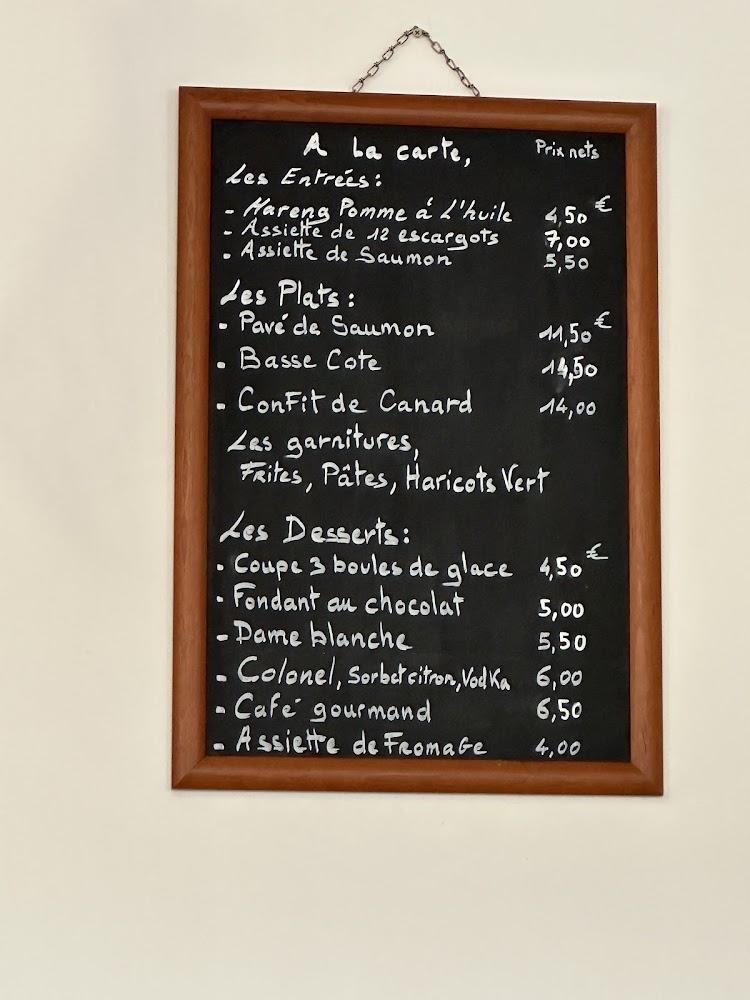 A La carte, Prix nets
Les Entrées:
- Hareng Pomme á L'huile 4,50 €
- Assiette de 12 escargots 7,00
- Assiette de Saumon 5,50
Les Plats:
- Pavé de Saumon 11,50 €
- Basse Cote 14,50
- ConFit de Canard 14,00
Les garnitures,
Frites, Pâtes, Haricots Vert
Les Desserts:
- Coupe 3 boules de glace 4,50 €
- Fondant au chocolat 5,00
- Dame blanche 5,50
- Colonel, Sorbet citron, Vodka 6,00
- Café gourmand 6,50
- Assiette de Fromage 4,00